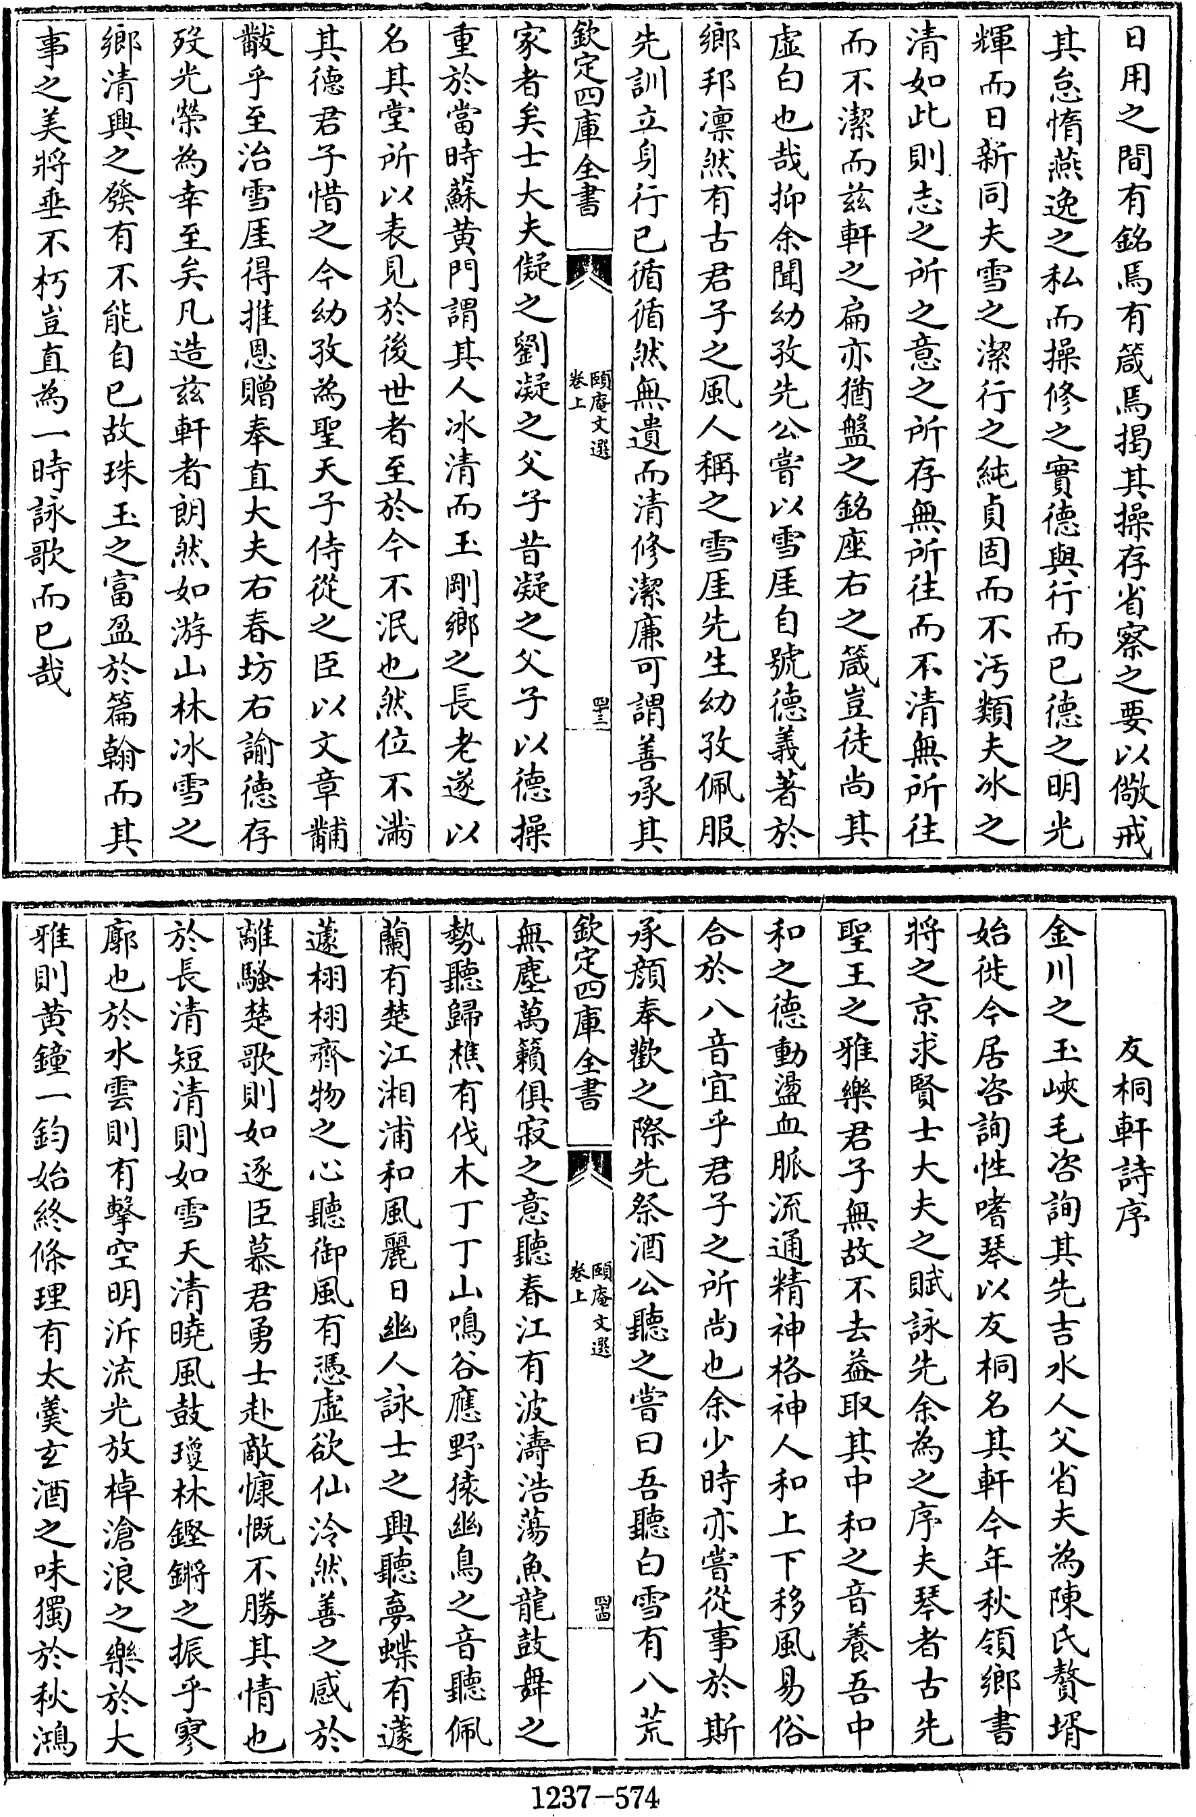 日用之間有銘焉有箴焉揭其操存省察之要以儆戒
其怠惰燕逸之私而操修之實德與行而已德之明光
輝而日新同夫雪之潔行之純貞固而不汚類夫冰之
清如此則志之所之意之所存無所徃而不清無所徃
而不潔而兹軒之扁亦猶盤之銘座右之箴豈徒尚其
虛白也哉抑余聞幼孜先公嘗以雪厓自號德義著於
鄉邦凛然有古君子之風人稱之雪厓先生幼孜佩服
先訓立身行已循循然無遺而清修潔廉可謂善承其
欽定四庫全書
頤庵文選
卷上
四十三
家者矣士大夫儗之劉凝之父子昔凝之父子以德操
重於當時蘇黄門謂其人冰清而玉剛鄉之長老遂以
名其堂所以表見於後世者至於今不泯也然位不滿
其德君子惜之今幼孜為聖天子侍從之臣以文章黼
黻乎至治雪厓得推恩贈奉直大夫右春坊右諭德存
歿光榮為幸至矣凡造兹軒者朗然如游山林冰雪之
鄉清興之發有不能自已故珠玉之富盈於篇翰而其
事之美將垂不朽豈直為一時詠歌而已哉
友桐軒詩序
金川之玉峽毛咨詢其先吉水人父省夫為陳氏贅壻
始徙今居咨詢性嗜琴以友桐名其軒今年秋領鄉書
將之京求賢士大夫之賦詠先余為之序夫琴者古先
聖王之雅樂君子無故不去葢取其中和之音養吾中
和之德動盪血脈流通精神格神人和上下移風易俗
合於八音宜乎君子之所尚也余少時亦嘗從事於斯
承顔奉歡之際先祭酒公聽之嘗曰吾聽白雪有八荒
欽定四庫全書
頤庵文選
卷上
四十四
無塵萬籟俱寂之意聽春江有波濤浩蕩魚龍鼓舞之
勢聽歸樵有伐木丁丁山鳴谷應野猿幽鳥之音聽佩
蘭有楚江湘浦和風麗日幽人詠士之興聽夢蝶有蘧
蘧栩栩齊物之心聽御風有憑虛欲仙泠然善之感於
離騷楚歌則如逐臣慕君勇士赴敵慷慨不勝其情也
於長清短清則如雪天清曉風鼓瓊林鏗鏘之振乎寥
廓也於水雲則有擊空明泝流光放棹滄浪之樂於大
雅則黄鐘一鈞始終條理有太羹玄酒之味獨於秋鴻
1237-574